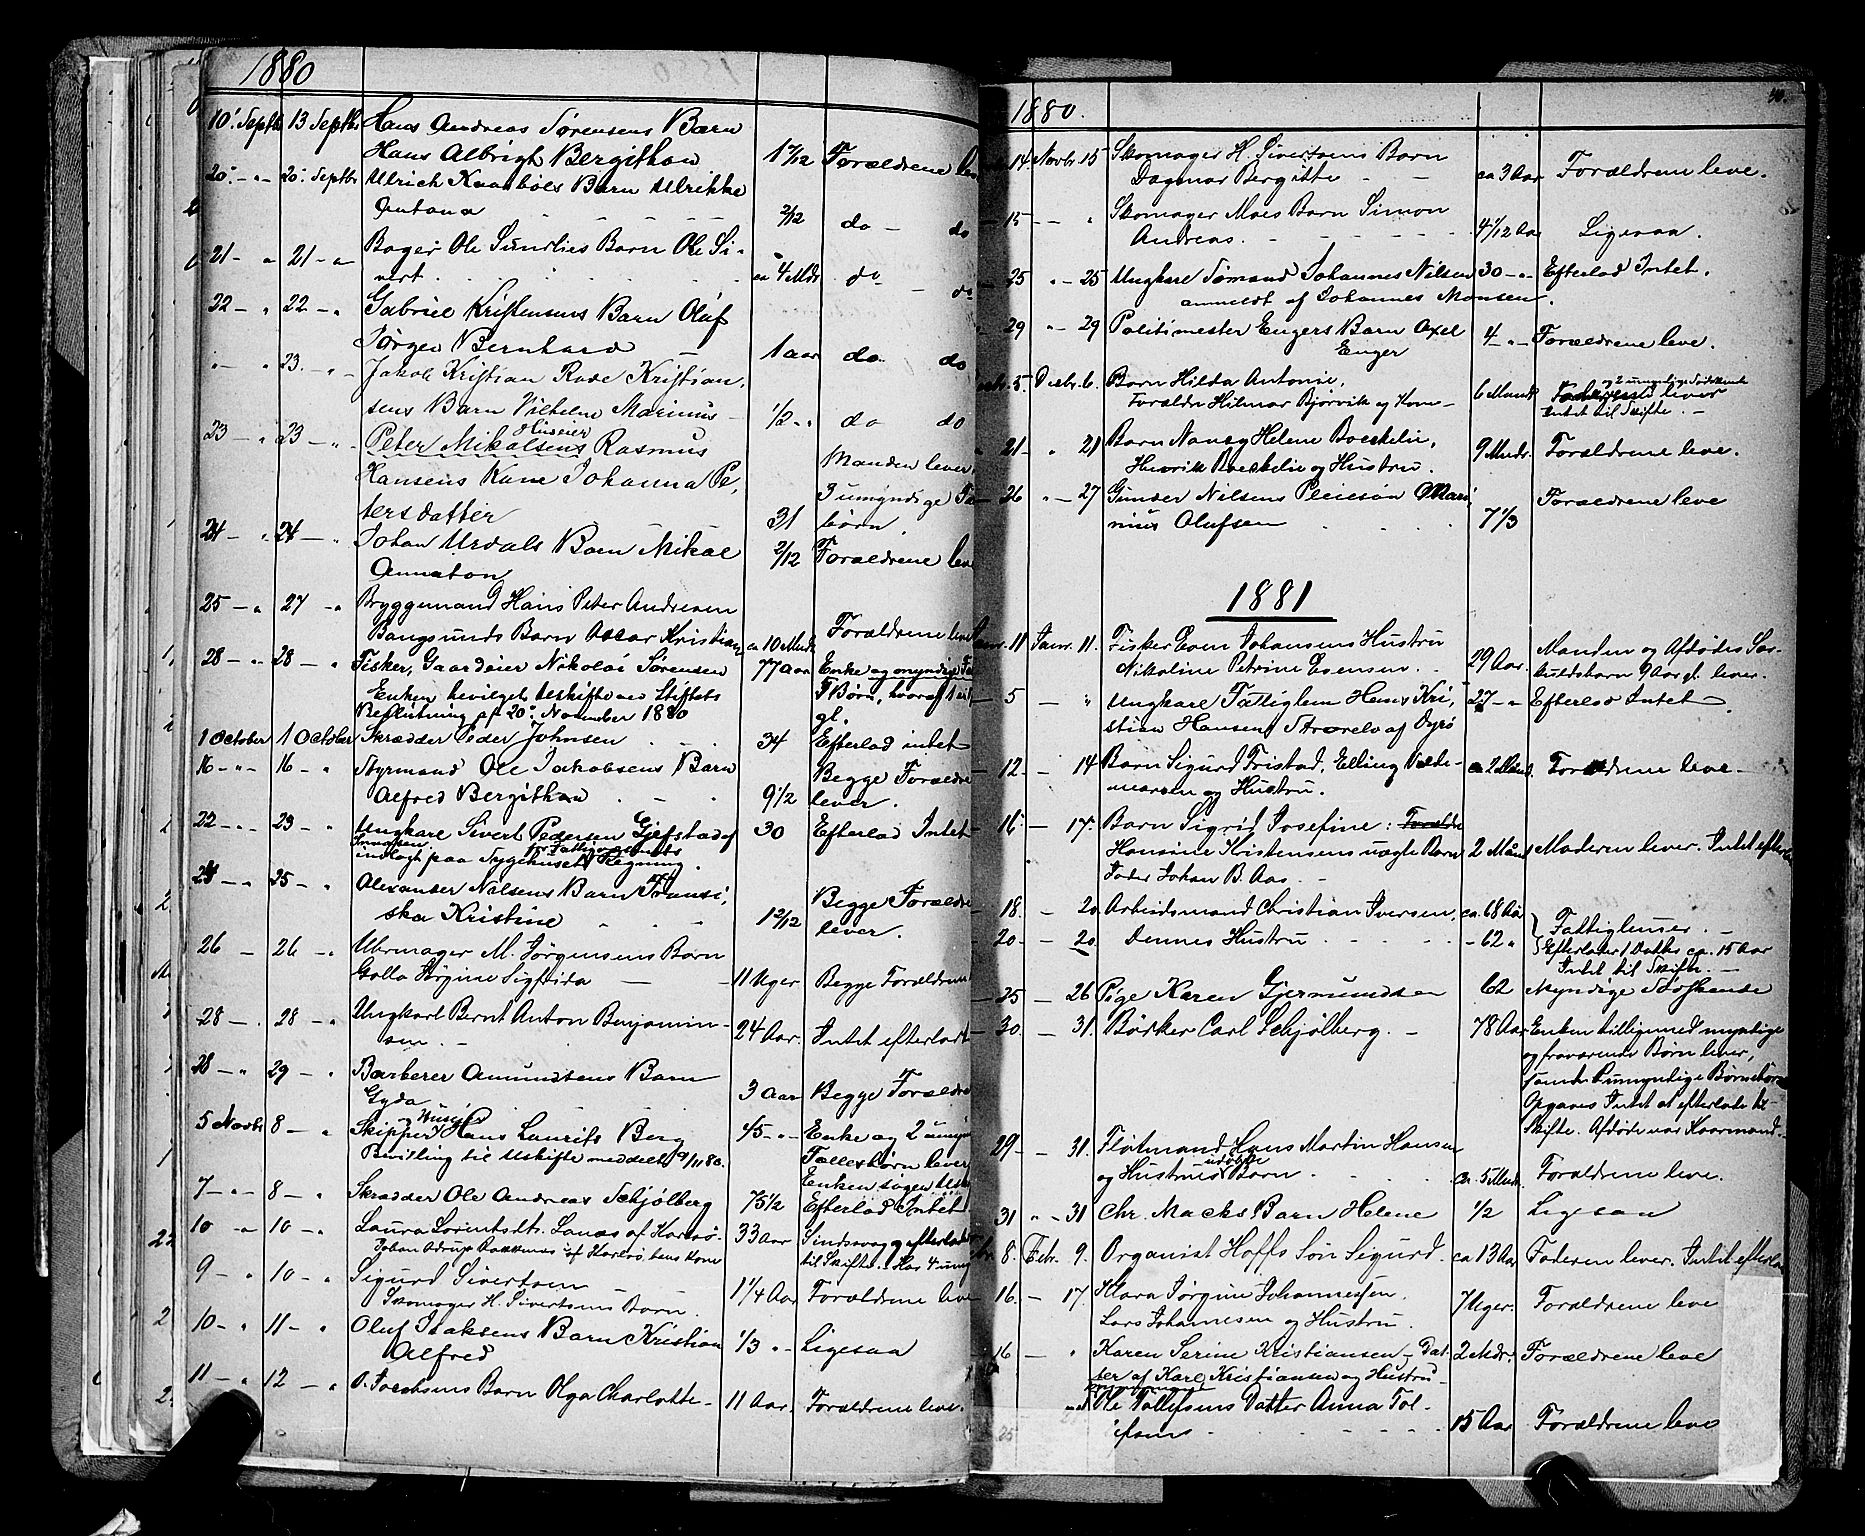 1880
10' Septb 13 Septbr Hans Andreas Sørensens Barn
Hans Albrigt Bergithon 1 7/12 Forældrene leve
20' - " 20' Septbr Ulrich Kaarbøls Barn Ulrikke
Antona 2/12 do - do
21 - " 21 - " Bager Ole Sundlies Barn Ole Si-
vert ca 4 Mdr do - do
22 - " 22 - " Gabriel Kristensens Barn Oluf
Jørgen Bernhard 1 aar do do
" - 23 - " Jakob Kristian Rode Kristian-
sens Barn Vilhelm Marinus 1/2 - " do do
23 - " 23 - " Peter Mikalsens Huseier Rasmus
Hansens Kone Johanna Pe- Manden lever
tersdatter 31 3 umyndige Fæ
børn
24 - " 24 - " Johan Urdals Barn Mikal 2/12 Forældrene leve
Annaton
25 - " 27 - " Bryggemand Hans Peter Andresen
Bangsunds Barn Oscar Kristian ca 10 Mndr Forældrene leve
28 - " 28 - " Fisker, Gaardeier Nikolai Sørensen 77 aar Enke og myndige
Enken bevilget Uskifte ved Stiftets 7 Børn, hvoraf 1
Beslutning af 20' November 1880
1 October 1 October Skrædder Peder Johnsen 34 Efterlod intet
16 - " - 16 - " Styrmand Ole Jakobsens Barn
Alfred Bergithon 9 1/2 Begge Forældre
lever.
22 - " 23 - " Ungkarl Sivert Pedersen Gjefstad af 30 Efterlod Intet
Snaasen
indlagt paa Sygehuset for Fattigvæsenets Regning.
24 - " 25 - " Alexander Nilsens Barn Fransi-
ska Kristine 1 2/12 Begge Forældre
lever.
26 - 26 - " Uhrmager M. Jørgensens Barn
Golla Jørgine Sigfrida - 11 Uger Begge Forældrene
28 - . 28 - " Ungkarl Bernt Anton Benjamin-
sen. - 24 Aar. Intet efterladt
28 - " 29 - " Barberer Amundsens Barn
Gyda 3 Aar Begge Forældre
5 Novbr 8 - " Skipper og Huseier Hans Laurits Berg 45 - " - Enke og 2 umyn
Bevilling til Uskifte meddelt 9/11 80. Fællesbørn lever
Enken søger Usk
7 - " - 8 - " Skrædder Ole Andreas Schjølberg 75 1/2 Efterlod Intet
10 " 10 - " Laura Lorintsdt. Lanæs af Karlsø. 33 Aar Sindssvag efterlader
til Skifte. Har 4 umy
9 - " 10 - " Sigurd Sivertsen
Skomager H. Sivertsens Barn. 1 1/4 Aar Forældrene leve
10 - " 11 - " Oluf Isaksens Barn Kristian 1/3 " - Ligesaa
Alfred
11 - " 12 - " O. Jacobsens Barn Olga Charlotte - 11 Aar. Forældrene leve.
40.
1880.
14 Novbr. 15 Skomager H. Sivertsens Barn
Dagmar Bergitte - - ca 3 Aar Forældrene leve.
15 - - " Skomager Moes Barn Simon
Andreas. 4 1/12 Aar Ligesaa.
25 " - 25 Ungkarl Sømand Johannes Nilsen 30 - " - Efterlod Intet.
anmeldt af Johannes Monsen.
29 " - 29 Politimester Engers Barn Axel 4 - " - Forældrene leve.
Enger
5. Decbr. 6. Barn Hilda Antonie, 6 Mand
Forældre Hilmar Bjørvik og Kone - og 2 umyndige Sødskende lever
Intet til Skifte. -
21 - " 21 Barn Nancy Helene Boeckelie, 9 Mndr. Forældrene leve.
Henrik Boeckelie og Hustru.
26 " - 27 Gunder Nilsens Pleiesøn O Mari
nius Olufsen 7 1/3 Forældrene leve
1881
11 Janr. 11. Fisker Even Johansens Hustru Manden og Afdødes Sær-
Nikoline Petrine Evensen. . 29 Aar. kuldsbarn 9 Aar gl. lever.
5 - " Ungkarl Fattiglem Hans Kri- 27 - " Efterlod Intet
stian Hansen Strorelv af Dyrø
12 - 14 Barn Sigurd Tristad, Elling Valde- ca 2 Mdr. Forældrene leve -
marsen og Hustru.
16 - 17. Barn Sigrid Josefine: Foræld
Hansine Kristensens uægte Barn 2 Mdr Moderen lever. Intet efterl
Fader Johan B. Aas. -
18. - 20 Arbeidsmand Christian Iversen. ca. 68 Aar Fattiglemmer. -
20 - - 20. Dennes Hustru - 62 " Efterlader 1 Datter ca. 15 Aar
Intet til Skifte. -
25 - 26 Pige Karen Gjermundsen 62 Myndige Sødskende
30. - 31. Bødker Carl Schjølberg. - 78 Aar Enken tilligemed myndige
og fraværende Børn lever,
samt umyndige Børnebørn
Opgaves Intet at efterlade til
Skifte. Afdøde var Kaarmand.
29 - - 31. Fløtmand Hans Martin Hansen
og Hustrues udøbte Barn. ca. 5 Mndr. Forældrene leve.
31 " - 31 Chr. Macks Barn Helene 1/2 Ligesaa
8. Febr. 9. Organist Hoffs Søn Sigurd. ca 13 Aar Faderen lever. Intet efterla
16. - 17. Klara Jørgine Johannesen.
Lars Johannesen og Hustru. 7 Uger. Forældrene leve
16 - " Karen Serine Kristiansen - Dat- 2 Mdr. Forældrene leve
ter af Karl Kristiansen og Hustru -
Ole Tollefsens Datter Anna Tol-
lefsens - - - - 15 Aar Forældrene leve
25